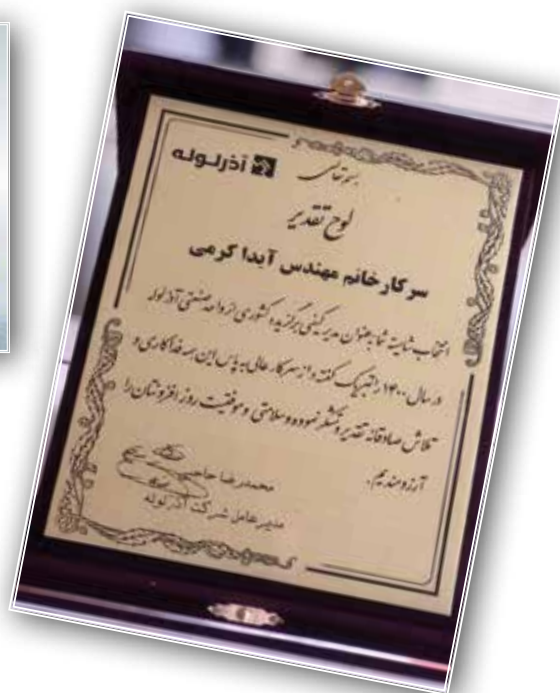 آذرلوله
بسمه‌تعالی
لوح تقدیر
سرکار خانم مهندس آیدا کرمی
انتخاب شایسته شما به عنوان مدیر کیفی برگزیده کشوری از واحد صنعتی آذرلوله
در سال ۱۴۰۰ را تبریک گفته و از سرکار عالی به پاس این همه فداکاری و
تلاش صادقانه تقدیر و تشکر نموده و سلامتی و موفقیت روز افزونتان را
آرزومندیم.
محمدرضا حاجی
مدیر عامل شرکت آذرلوله